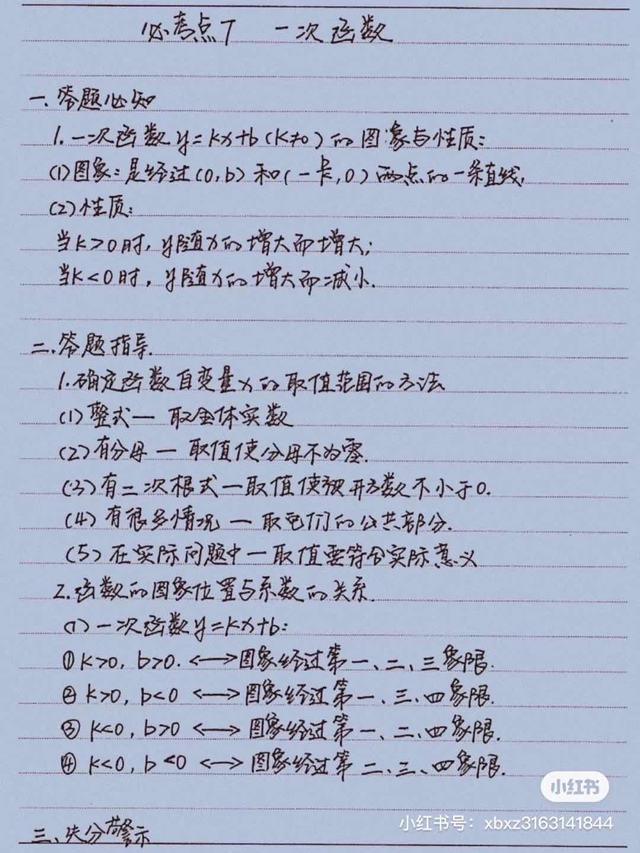 必考点7 一次函数
一.答题必知
1.一次函数y=kx+b(k≠0)的图象与性质:
(1)图象:是经过(0,b)和(-b/k,0)两点的一条直线,
(2)性质:
当k>0时,y随x的增大而增大;
当k<0时,y随x的增大而减小.
二.答题指导.
1.确定函数自变量x的取值范围的方法
(1)整式一取全体实数
(2)有分母一取值使分母不为零.
(3)有二次根式一取值使被开方数不小于0.
(4)有很多情况一取它们的公共部分.
(5)在实际问题中一取值要符合实际意义
2.函数的图象位置与系数的关系.
(1)一次函数y=kx+b:
①k>0,b>0.⟷图象经过第一、二、三象限.
②k>0,b<0⟷图象经过第一、三、四象限.
③k<0,b>0⟷图象经过第一、二、四象限.
④k<0,b<0⟷图象经过第二、三、四象限.
三、失分警示
小红书
小红书号:xbxz3163141844